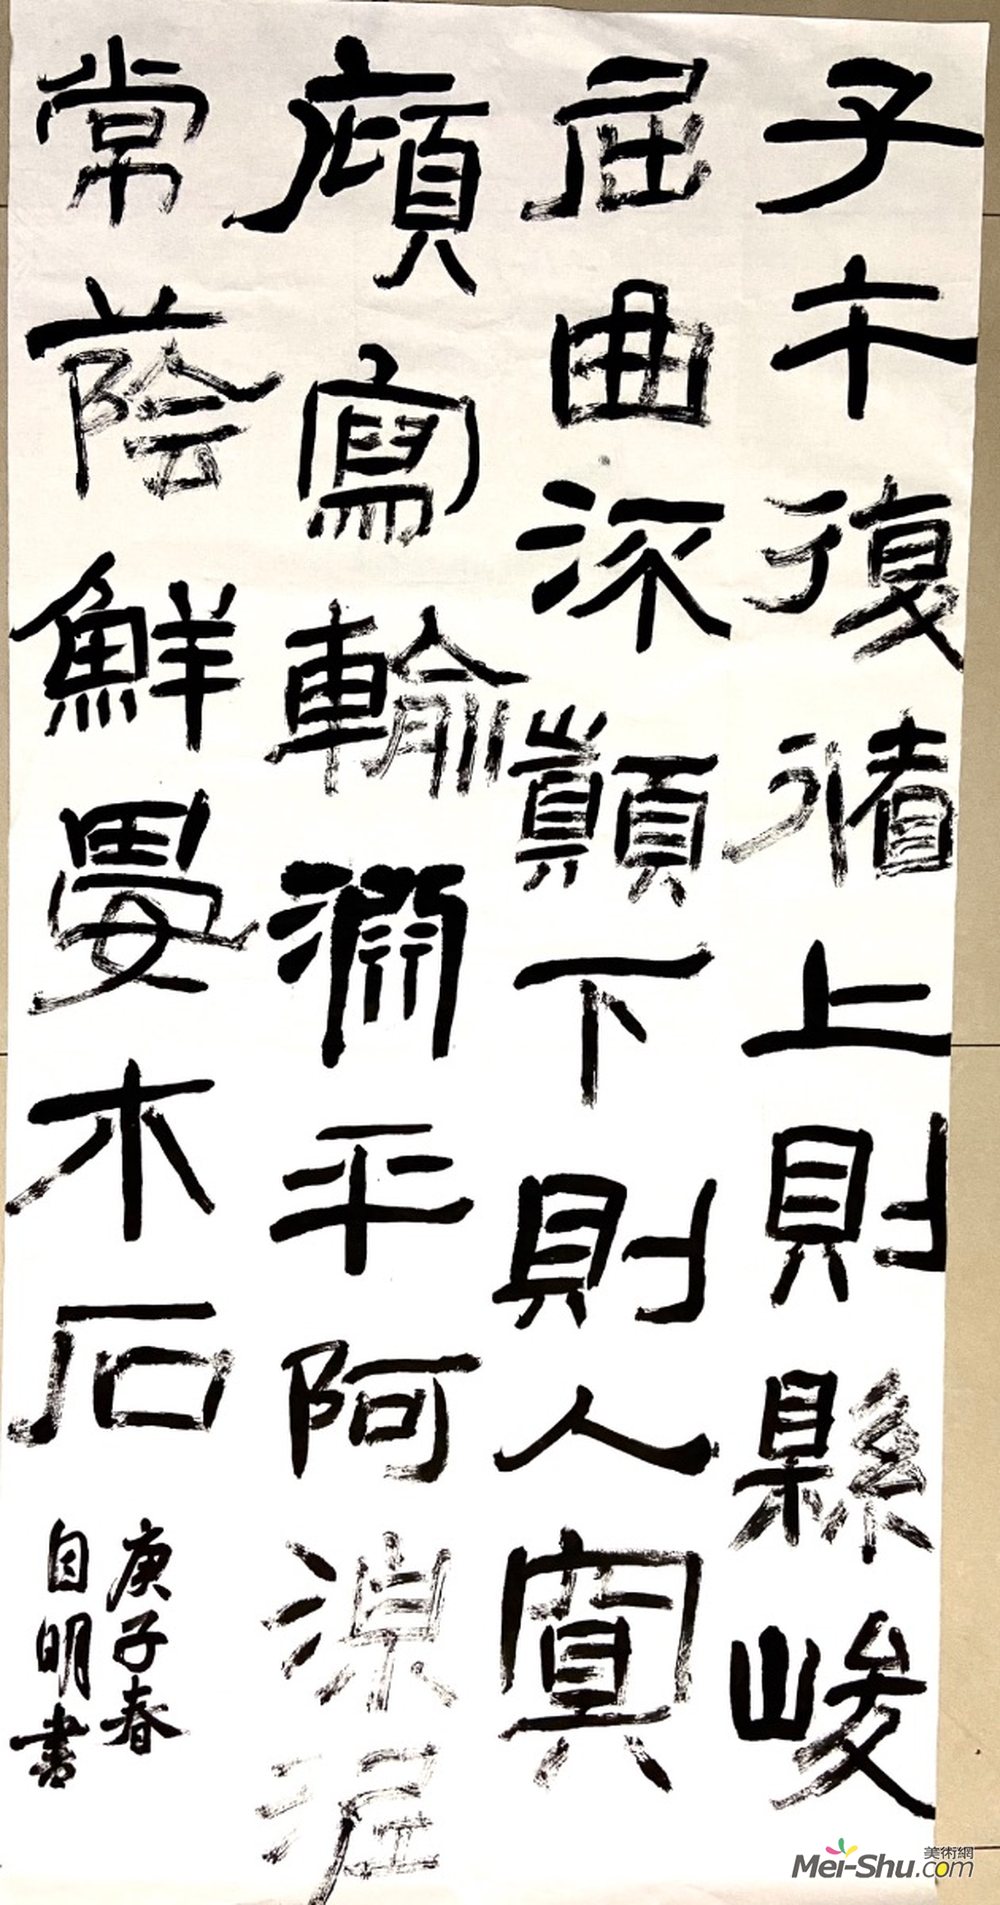 子午復循上則縣峻
屈曲流顛下則人寘
廎寫輸淵平阿湶泥
常蔭鮮晏木石
庚子春
自明書
美術網
Mei-Shu.com